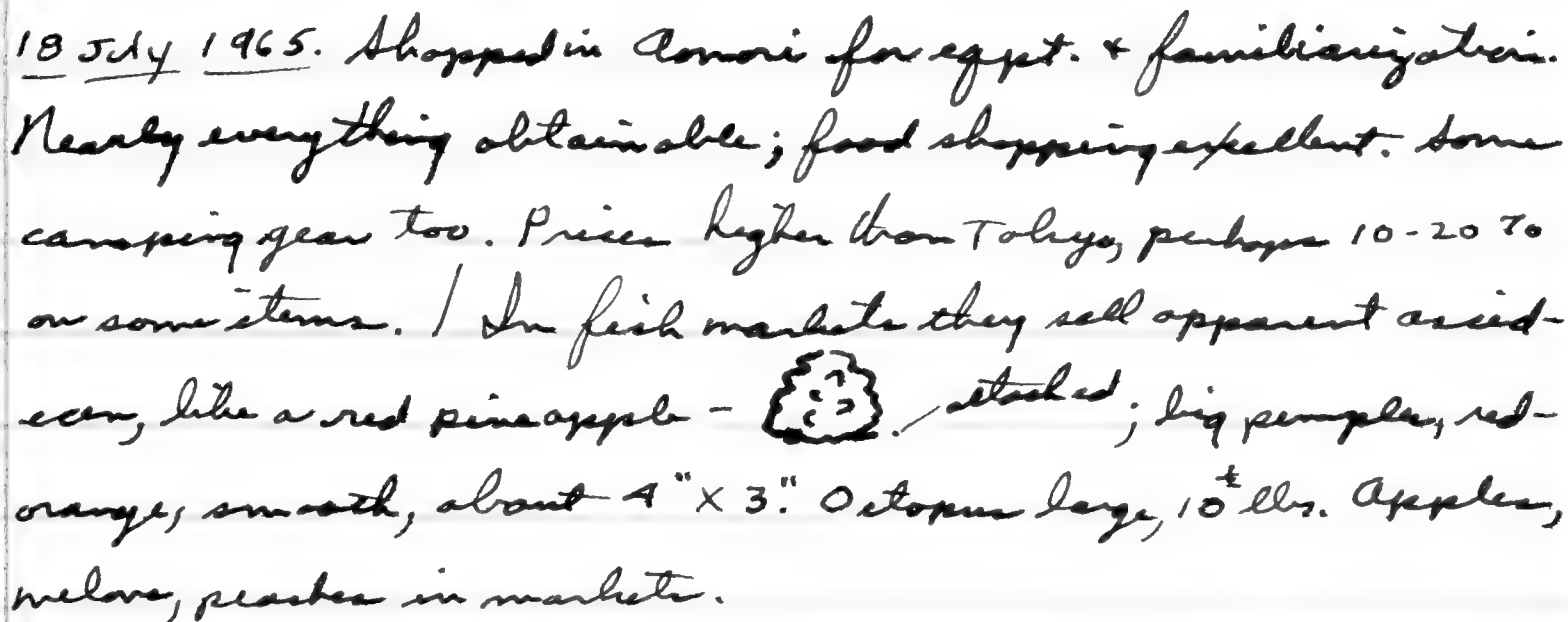 18 July 1965. Shopped in Aomori for eqpt. & familiarization.
Nearly everything obtainable; food shopping excellent. Some
camping gear too. Prices higher than Tokyo, perhaps 10-20%
on some items. / In fish markets they sell apparent ascid-
ean, like a red pineapple - attached; big pimples, red-
orange, smooth, about 4" x 3". Octopus large, 10± lbs. Apples,
melons, peaches in markets.